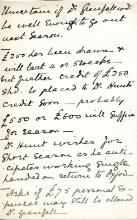 Uncertain if Dr Grenfell wd
be well enough to go out
next Season.
£200 has been drawn &
will last 4 or 5 weeks
but further credit of £250
shd. be placed to Dr Hunts
credit soon - probably
£550 or £600 will suffice
for Season -
Dr Hunt wishes for
Short Season as he anti-
cipates working single
handed on return to Oxford.
Asks if £75 personal Ex-
penses may still be allowed
Dr Grenfell.